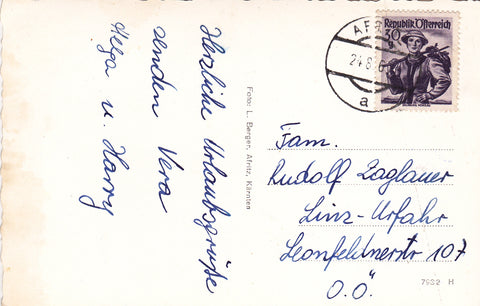 Herzliche Urlaubsgrüße
senden Vera
Helga u. Harry
Foto: L. Berger, Afritz, Kärnten
Republik Österreich
30
a
Fam.
Rudolf Zaglauer
Linz-Urfahr
Leonfeldnerstr 107
O.Ö.
7982 H